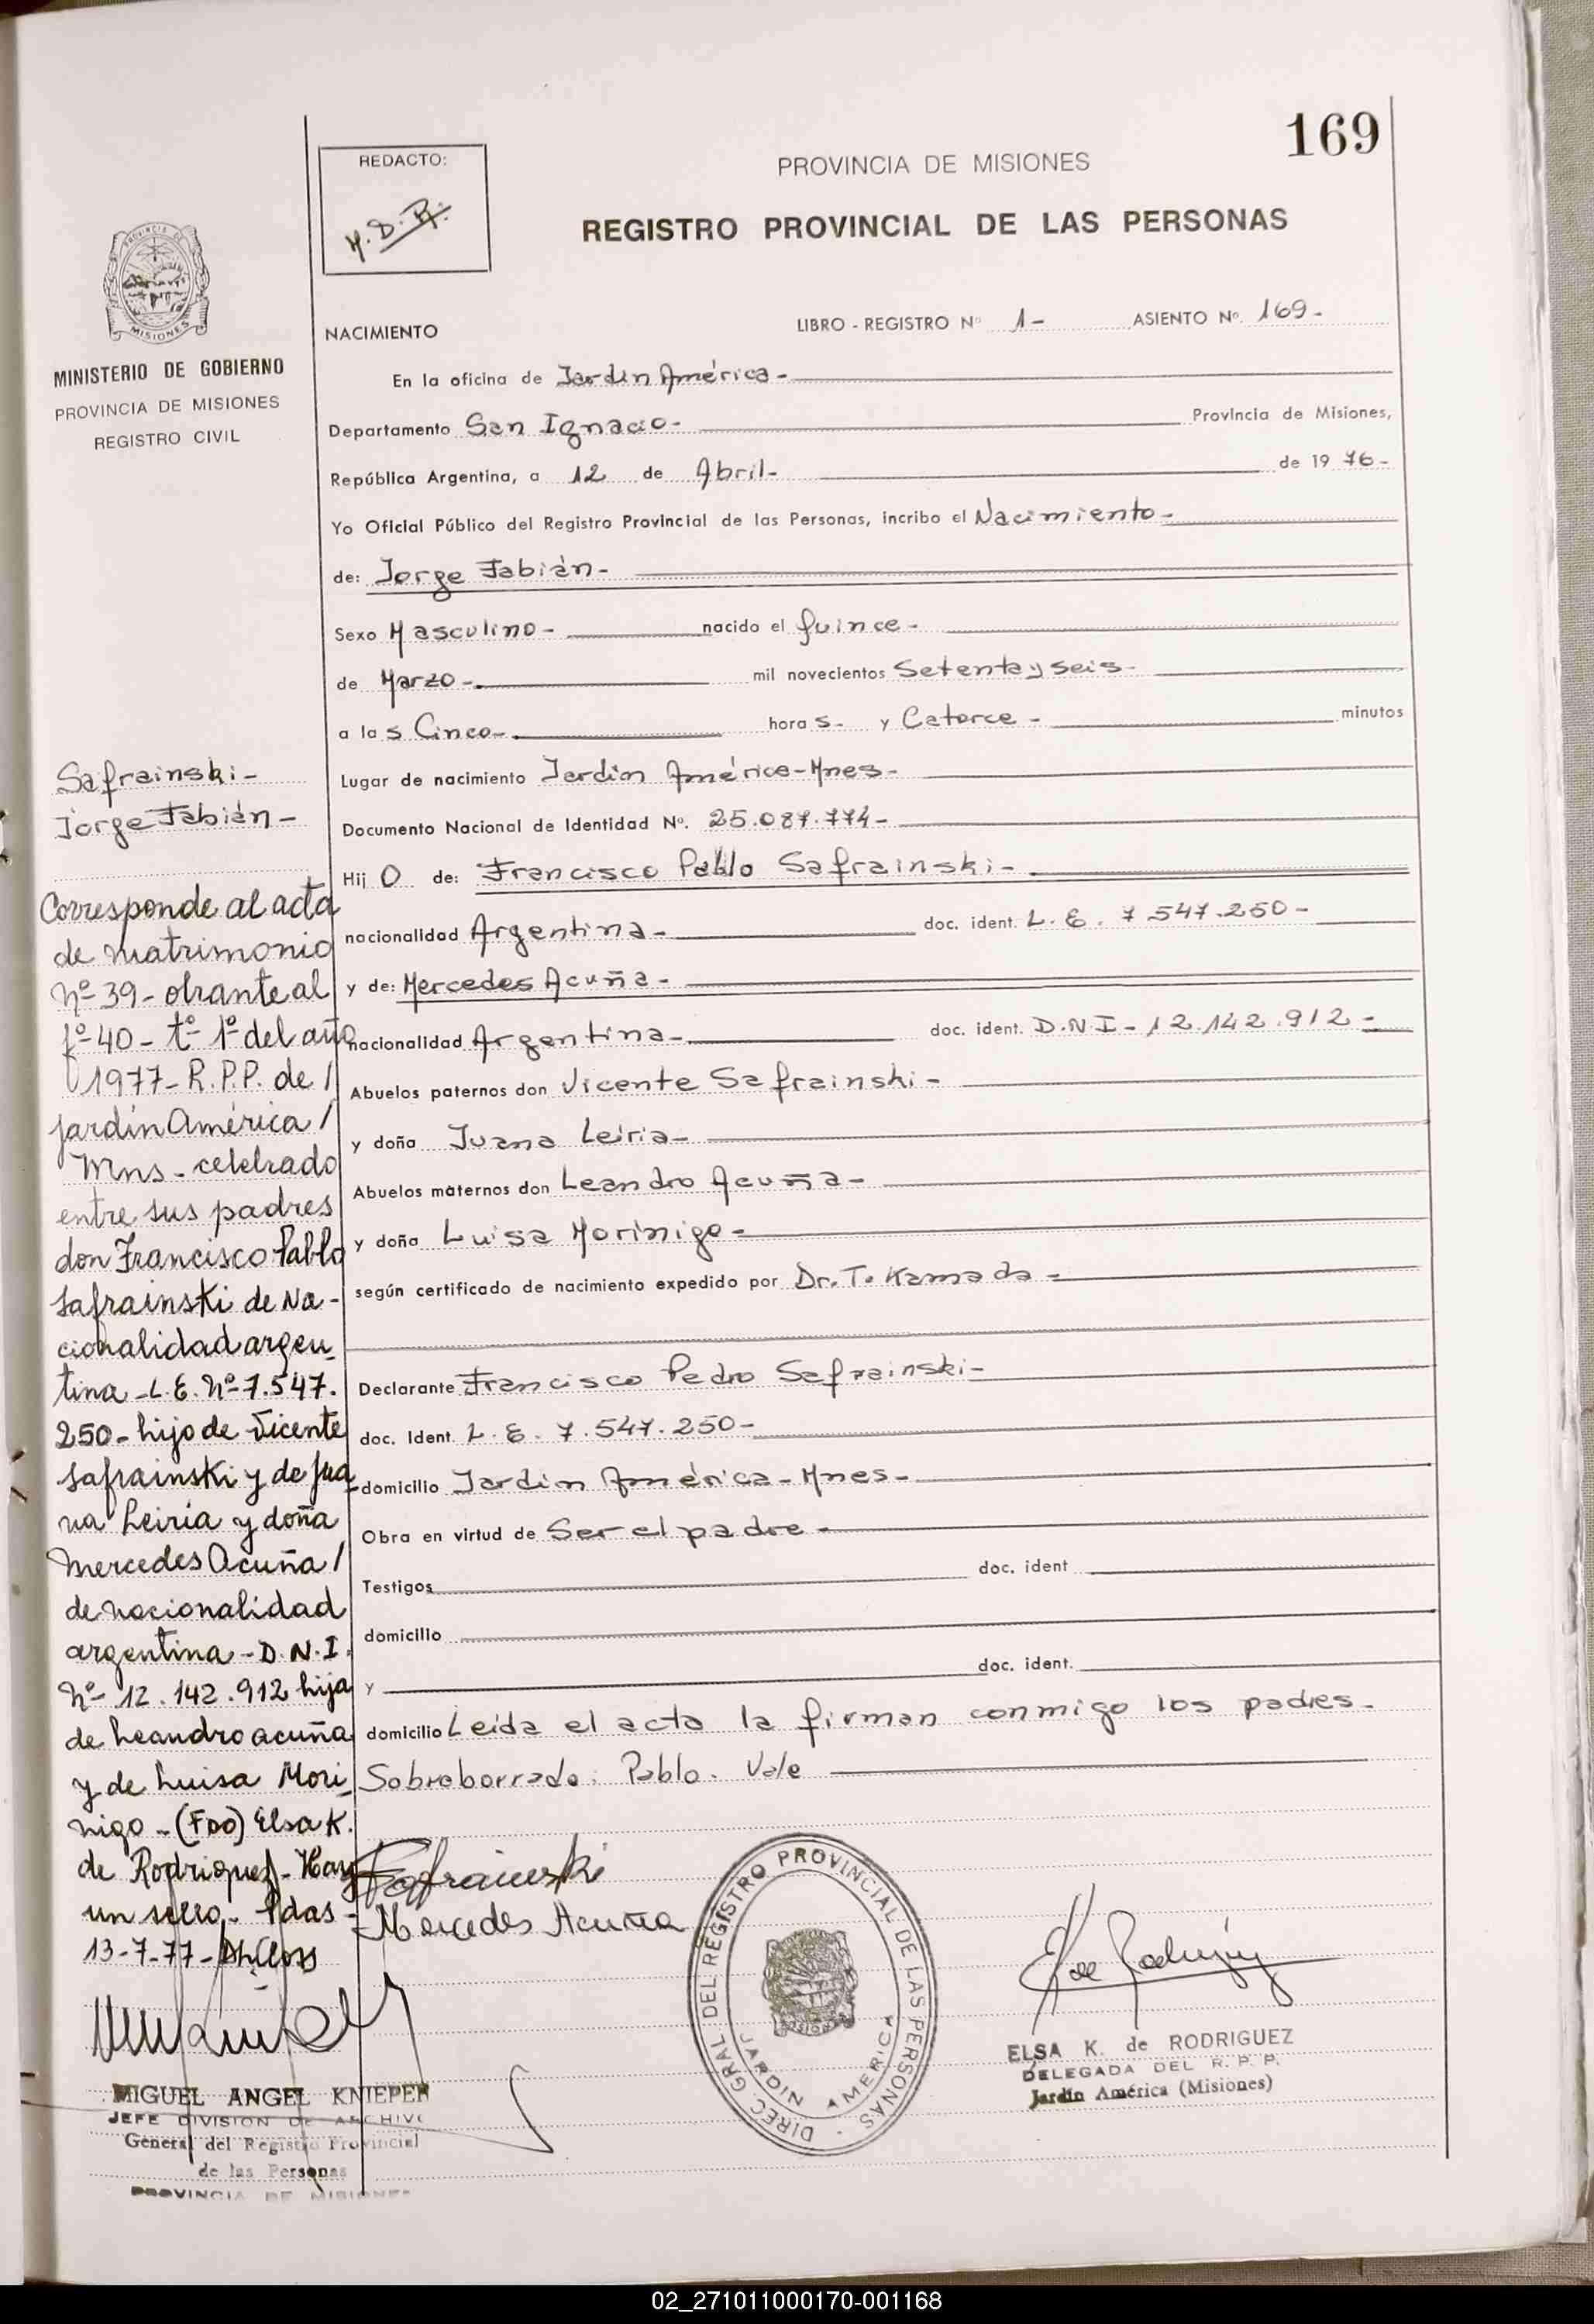 169
REDACTO:
PROVINCIA DE MISIONES
REGISTRO PROVINCIAL DE LAS PERSONAS
MISIONES
MINISTERIO DE GOBIERNO
PROVINCIA DE MISIONES
REGISTRO CIVIL
NACIMIENTO LIBRO - REGISTRO Nº 1- ASIENTO Nº. 169-
En la oficina de Jardín América-
Departamento San Ignacio- Provincia de Misiones,
República Argentina, a 12 de Abril- de 19 76-
Yo Oficial Público del Registro Provincial de las Personas, incribo el Nacimiento-
de: Jorge Fabián-
Sexo Masculino- nacido el quince-
de Marzo- mil novecientos Setenta y seis-
a las Cinco- horas- y Catorce- minutos
Lugar de nacimiento Jardín América-Mnes-
Documento Nacional de Identidad Nº. 25.087.774-
Hijo de: Francisco Pablo Safrainski-
nacionalidad Argentina- doc. ident. L.E. 7.547.250-
y de: Mercedes Acuña-
nacionalidad Argentina- doc. ident. D.N.I- 12.142.912-
Abuelos paternos don Vicente Safrainski-
y doña Juana Leiria-
Abuelos maternos don Leandro Acuña-
y doña Luisa Morinigo-
según certificado de nacimiento expedido por Dr. T. Kamada-
Declarante Francisco Pedro Safrainski-
doc. Ident. L.E. 7.547.250-
domicilio Jardín América-Mnes-
Obra en virtud de Ser el padre-
Testigos doc. ident
domicilio
y doc. ident.
domicilio Leída el acta la firman conmigo los padres-
Sobreborrado: Pablo. Vale
Safrainski-
Jorge Fabián-
Corresponde al acta
de matrimonio
Nº 39- obrante al
fº 40- tº 1º del año
1977- R.P.P. de /
Jardín América /
Mns- celebrado
entre sus padres
don Francisco Pablo
Safrainski de Na-
cionalidad argen-
tina-L.E. Nº 7.547.
250- hijo de Vicente
Safrainski y de Jua-
na Leiria y doña
Mercedes Acuña /
de nacionalidad
argentina-D.N.I.
Nº 12.142.912 hija
de Leandro acuña
y de Luisa Mori-
nigo-(Fdo) Elsa K.
de Rodriguez- Hay
un sello- Pdas-
13-7-77-
Safrainski
Mercedes Acuña
DIREC. GRAL. DEL REGISTRO PROVINCIAL DE LAS PERSONAS
JARDIN AMERICA
E K de Rodriguez
ELSA K. de RODRIGUEZ
DELEGADA DEL R. P. P.
Jardín América (Misiones)
MIGUEL ANGEL KNIEPER
JEFE DIVISION DE ARCHIVO
General del Registro Provincial
de las Personas
PROVINCIA DE MISIONES
02_271011000170-001168